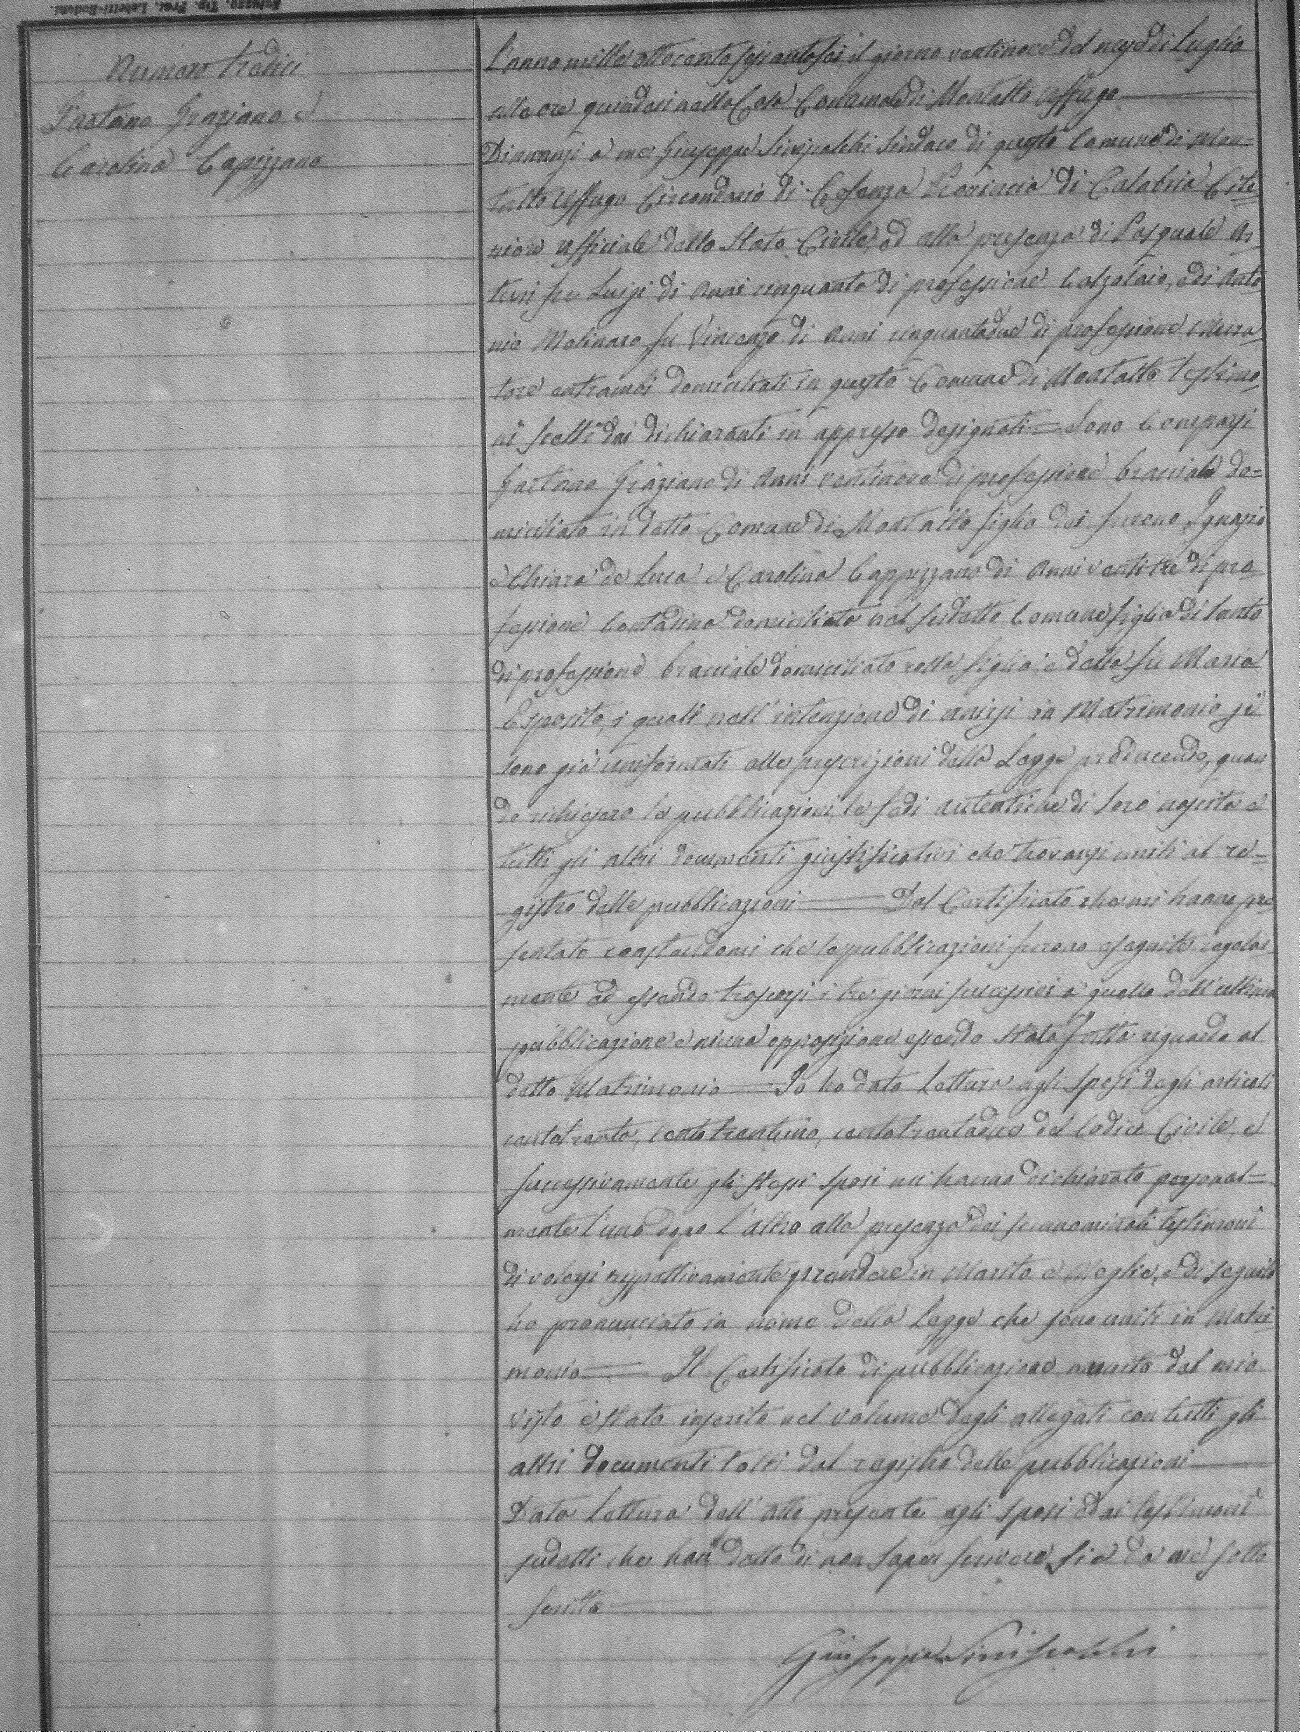 Numero tredici
Gaetano Graziano e
Carolina Capizzano
L'anno mille ottocento sessantasei il giorno ventinove del mese di Luglio
alle ore quindici nella Casa Comunale di Montalto Uffugo
Dinanzi a me Giuseppe Siniscalchi Sindaco di questo Comune di Mon=
talto Uffugo Circondario di Cosenza Provincia di Calabria Cite
riore ufficiale dello Stato Civile, ed alla presenza di Pasquale
fu Luigi di Anni cinquanta di professione Calzolaio, e di Anto
nio Molinaro fu Vincenzo di Anni cinquantadue di professione
entrambi domiciliati in questo Comune di Montalto testimo
ni scelti dai dichiaranti in appresso designati = Sono Comparsi
Gaetano Graziano di Anni ventinove di professione bracciale do=
miciliato in detto Comune di Montalto figlio dei furono Ignazio
e Chiara de Luca e Carolina Cappizzano di Anni ventitre di pro
fessione Contadina domiciliata nel sudetto Comune figlia di Santo
di professione bracciale domiciliato colla figlia, e della fu Maria
Esposito, i quali nell'intenzione di unirsi in Matrimonio si
sono già uniformati alle prescrizioni della Legge producendo, quan
do richiesero le pubblicazioni le fedi autentiche di loro nascita e
tutti gli altri documenti giustificativi che trovansi uniti al re=
gistro delle pubblicazioni Dal Certificato che mi hanno pre
sentato constandomi che le pubblicazioni furono eseguite regolar
mente ed essendo trascorsi i tre giorni successivi a quello dell'ultima
pubblicazione e niuna opposizione essendo stata fatta riguardo al
detto Matrimonio Io ho dato Lettura agli Sposi degli articoli
centotrenta, centotrentuno, centotrentadue del Codice Civile, e
successivamente gli stessi sposi mi hanno dichiarato personal=
mente l'uno dopo l'altro alla presenza dei sunnominati testimoni
di volersi rispettivamente prendere in Marito e Moglie, e di seguito
ho pronunciato in nome della Legge che sono uniti in Matri
monio Il Certificato di pubblicazione munito dal mio
visto è stato inserito nel volume degli allegati con tutti gli
altri documenti tolti dal registro delle pubblicazioni
Dato Lettura dell'atto presente agli sposi e dai testimoni
sudetti che han detto di non saper scrivere, si è da me sotto
scritto
Giuseppe Siniscalchi